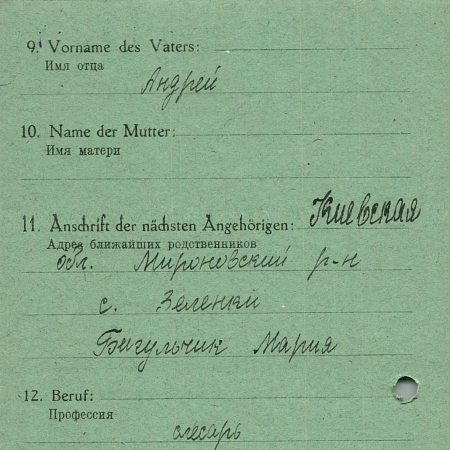 9. Vorname des Vaters:
Имя отца
Андрей
10. Name der Mutter:
Имя матери
11. Anschrift der nächsten Angehörigen: Киевская
Адрес ближайших родственников
обл. Мироновский р-н
с. Зеленки
Бигульчик Мария
12. Beruf:
Профессия
слесарь